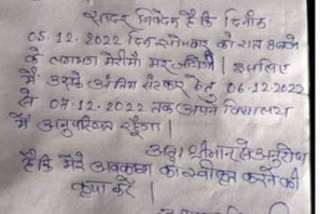 सादर निवेदन है कि दिनांक
05.12.2022 दिन सोमवार को रात 8 बजे
के लगभग मेरी माँ मर जायेगी। इसलिए
मैं उसके अंतिम संस्कार हेतु 06.12.2022
से 07.12.2022 तक अपने विद्यालय
में अनुपस्थित रहूँगा।
अतः श्रीमान् से अनुरोध
है कि मेरे अवकाश का स्वीकृत करने की
कृपा करें।